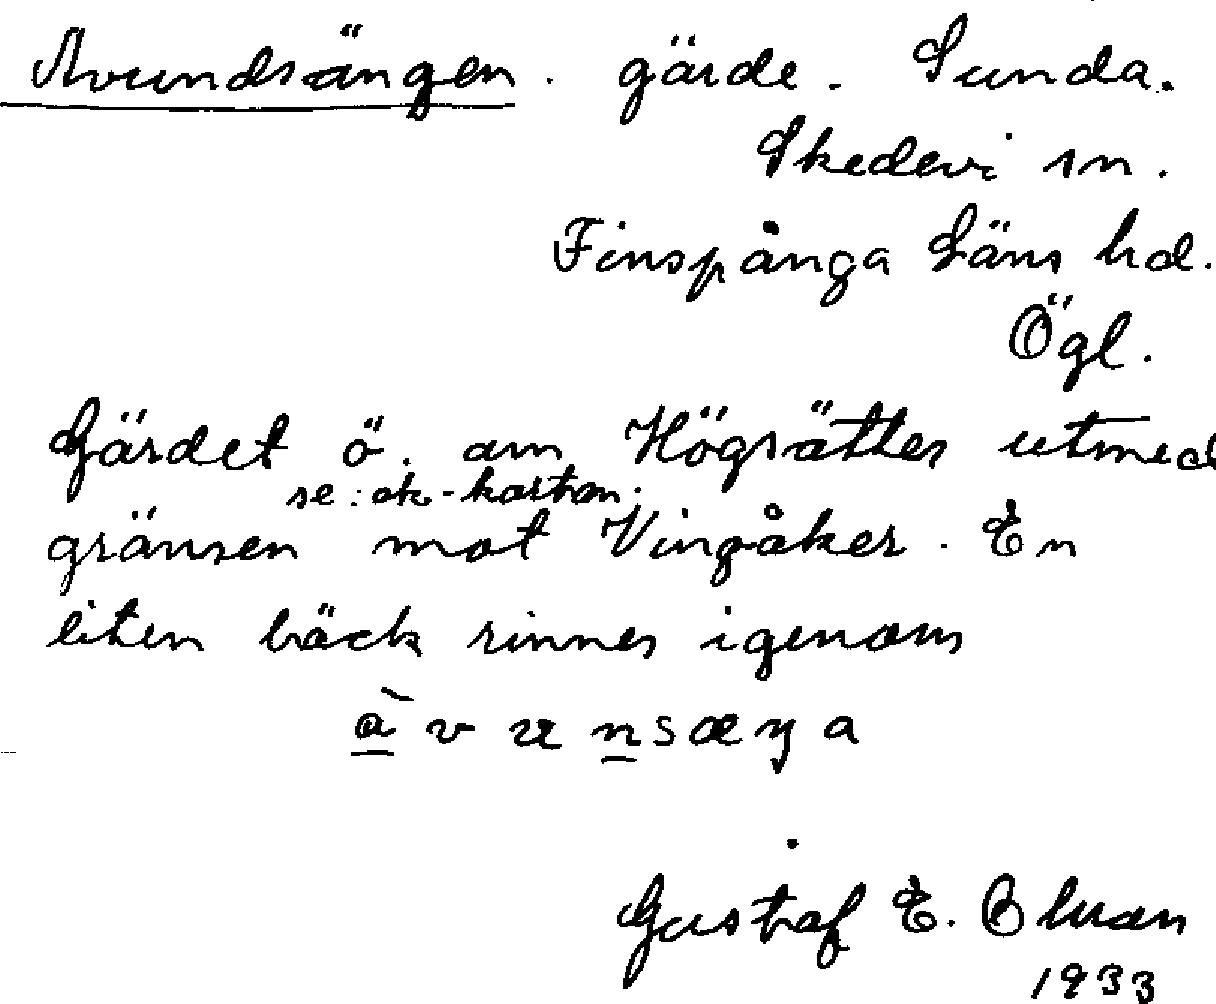 Avundsängen. gärde. Sunda.
Skedevi sn.
Finspånga Läns hd.
Ögl.
Gärdet ö. om Högsätter utmed
se: ek-kartan.
gränsen mot Vingåker. En
liten bäck rinner igenom
àvunsæŋa
Gustaf E.
1933